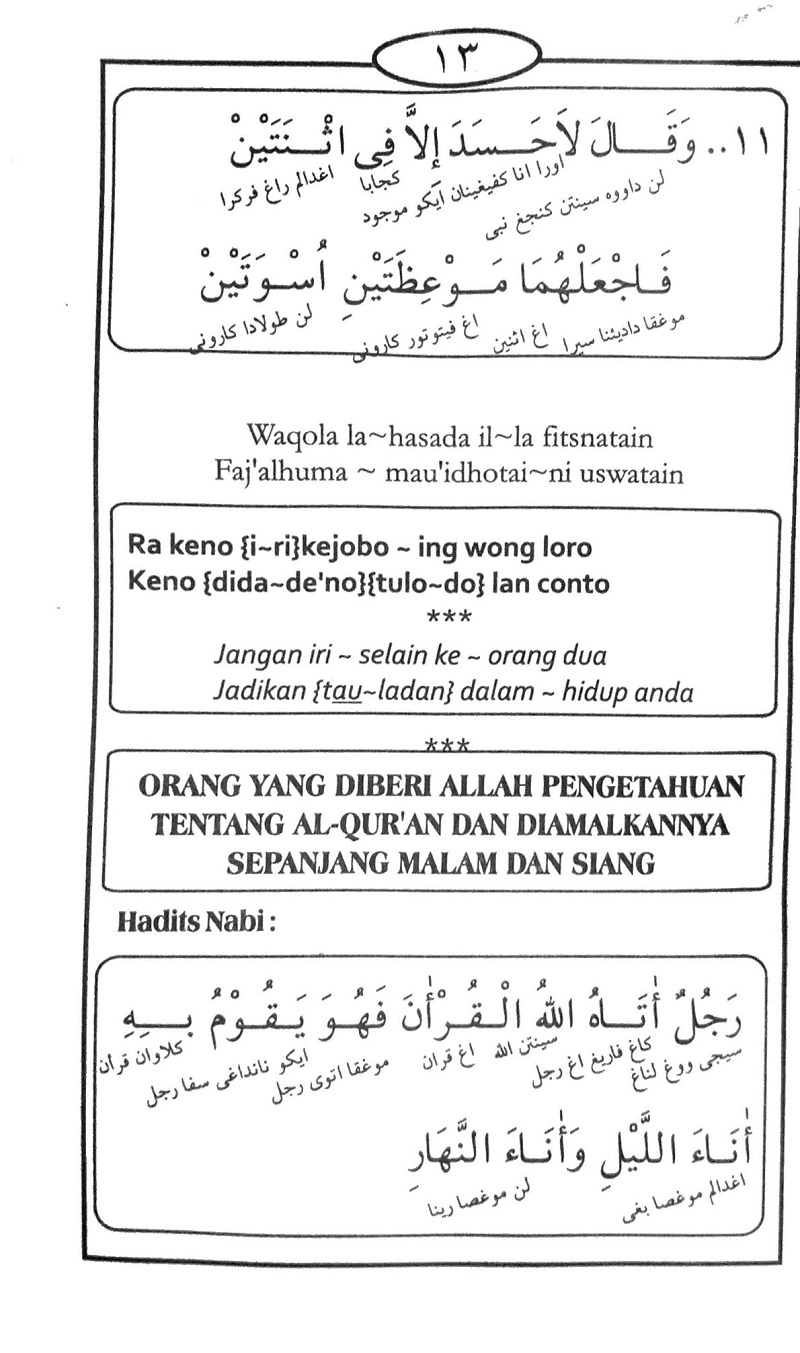 ١٣
١١.. وَقَـــالَ لاَحَـــسَدَ إِلاَّ فِي اثْـــنَتَيْنْ
لن داووه سينتن كنجڠ نبي اورا انا كفيڠينان ايكو موجود كجابا اڠدالم
فَـاجْعَلْهُمَا مَـــوْعِظَتَيْنِ اُسْـوَتَيْنْ
موڠكا داديئنا سيرا اڠ اثنين اڠ فيتوتور كاروني لن طولادا كاروني
Waqola la~hasada il~la fitsnatain
Faj'alhuma ~ mau'idhotai~ni uswatain
Ra keno {i~ri}kejobo ~ ing wong loro
Keno {dida~de'no}{tulo~do} lan conto
***
Jangan iri ~ selain ke ~ orang dua
Jadikan {tau~ladan} dalam ~ hidup anda
***
ORANG YANG DIBERI ALLAH PENGETAHUAN
TENTANG AL-QUR'AN DAN DIAMALKANNYA
SEPANJANG MALAM DAN SIANG
Hadits Nabi :
رَجُلٌ أٰتَـــاهُ اللهُ الْـقُـرْأٰنَ فَهُـوَ يَـقُـوْمُ بِـــهِ
سيجي ووڠ لناڠ كاڠ فاريڠ اڠ رجل سينتن الله اڠ قران موڠكا اتوى رجل ايكو رجل كلاوان قرأن
أٰنَـــاءَ اللَّيْلِ وَأٰنَـاءَ النَّهَارِ
اڠدالم موڠصا بڠي لن موڠصا رينا